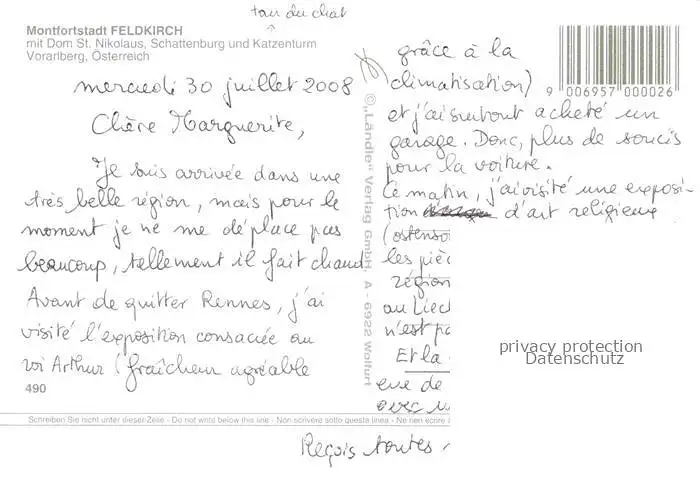 tour du chat
Montfortstadt FELDKIRCH
mit Dom St. Nikolaus, Schattenburg und Katzenturm
Vorarlberg, Österreich
mercredi 30 juillet 2008
Chère Marguerite,
Je suis arrivée dans une
très belle région, mais pour le
moment je ne me déplace pas
beaucoup, tellement il fait chaud.
Avant de quitter Rennes, j'ai
visité l'exposition consacrée au
roi Arthur (fraîcheur agréable
490
© „Ländle" Verlag GmbH, A - 6922 Wolfurt
grâce à la
climatisation)
et j'ai surtout acheté un
garage. Donc, plus de soucis
pour la voiture.
Ce matin, j'ai visité une exposi-
tion d'art religieux
(ostenso
les pièc
région
au Liech
n'est pa
Et la
eue de
avec u
Reçois toutes
9 006957 000026
Schreiben Sie nicht unter dieser Zeile - Do not write below this line - Non scrivere sotto questa linea - Ne rien écrire
privacy protection
Datenschutz